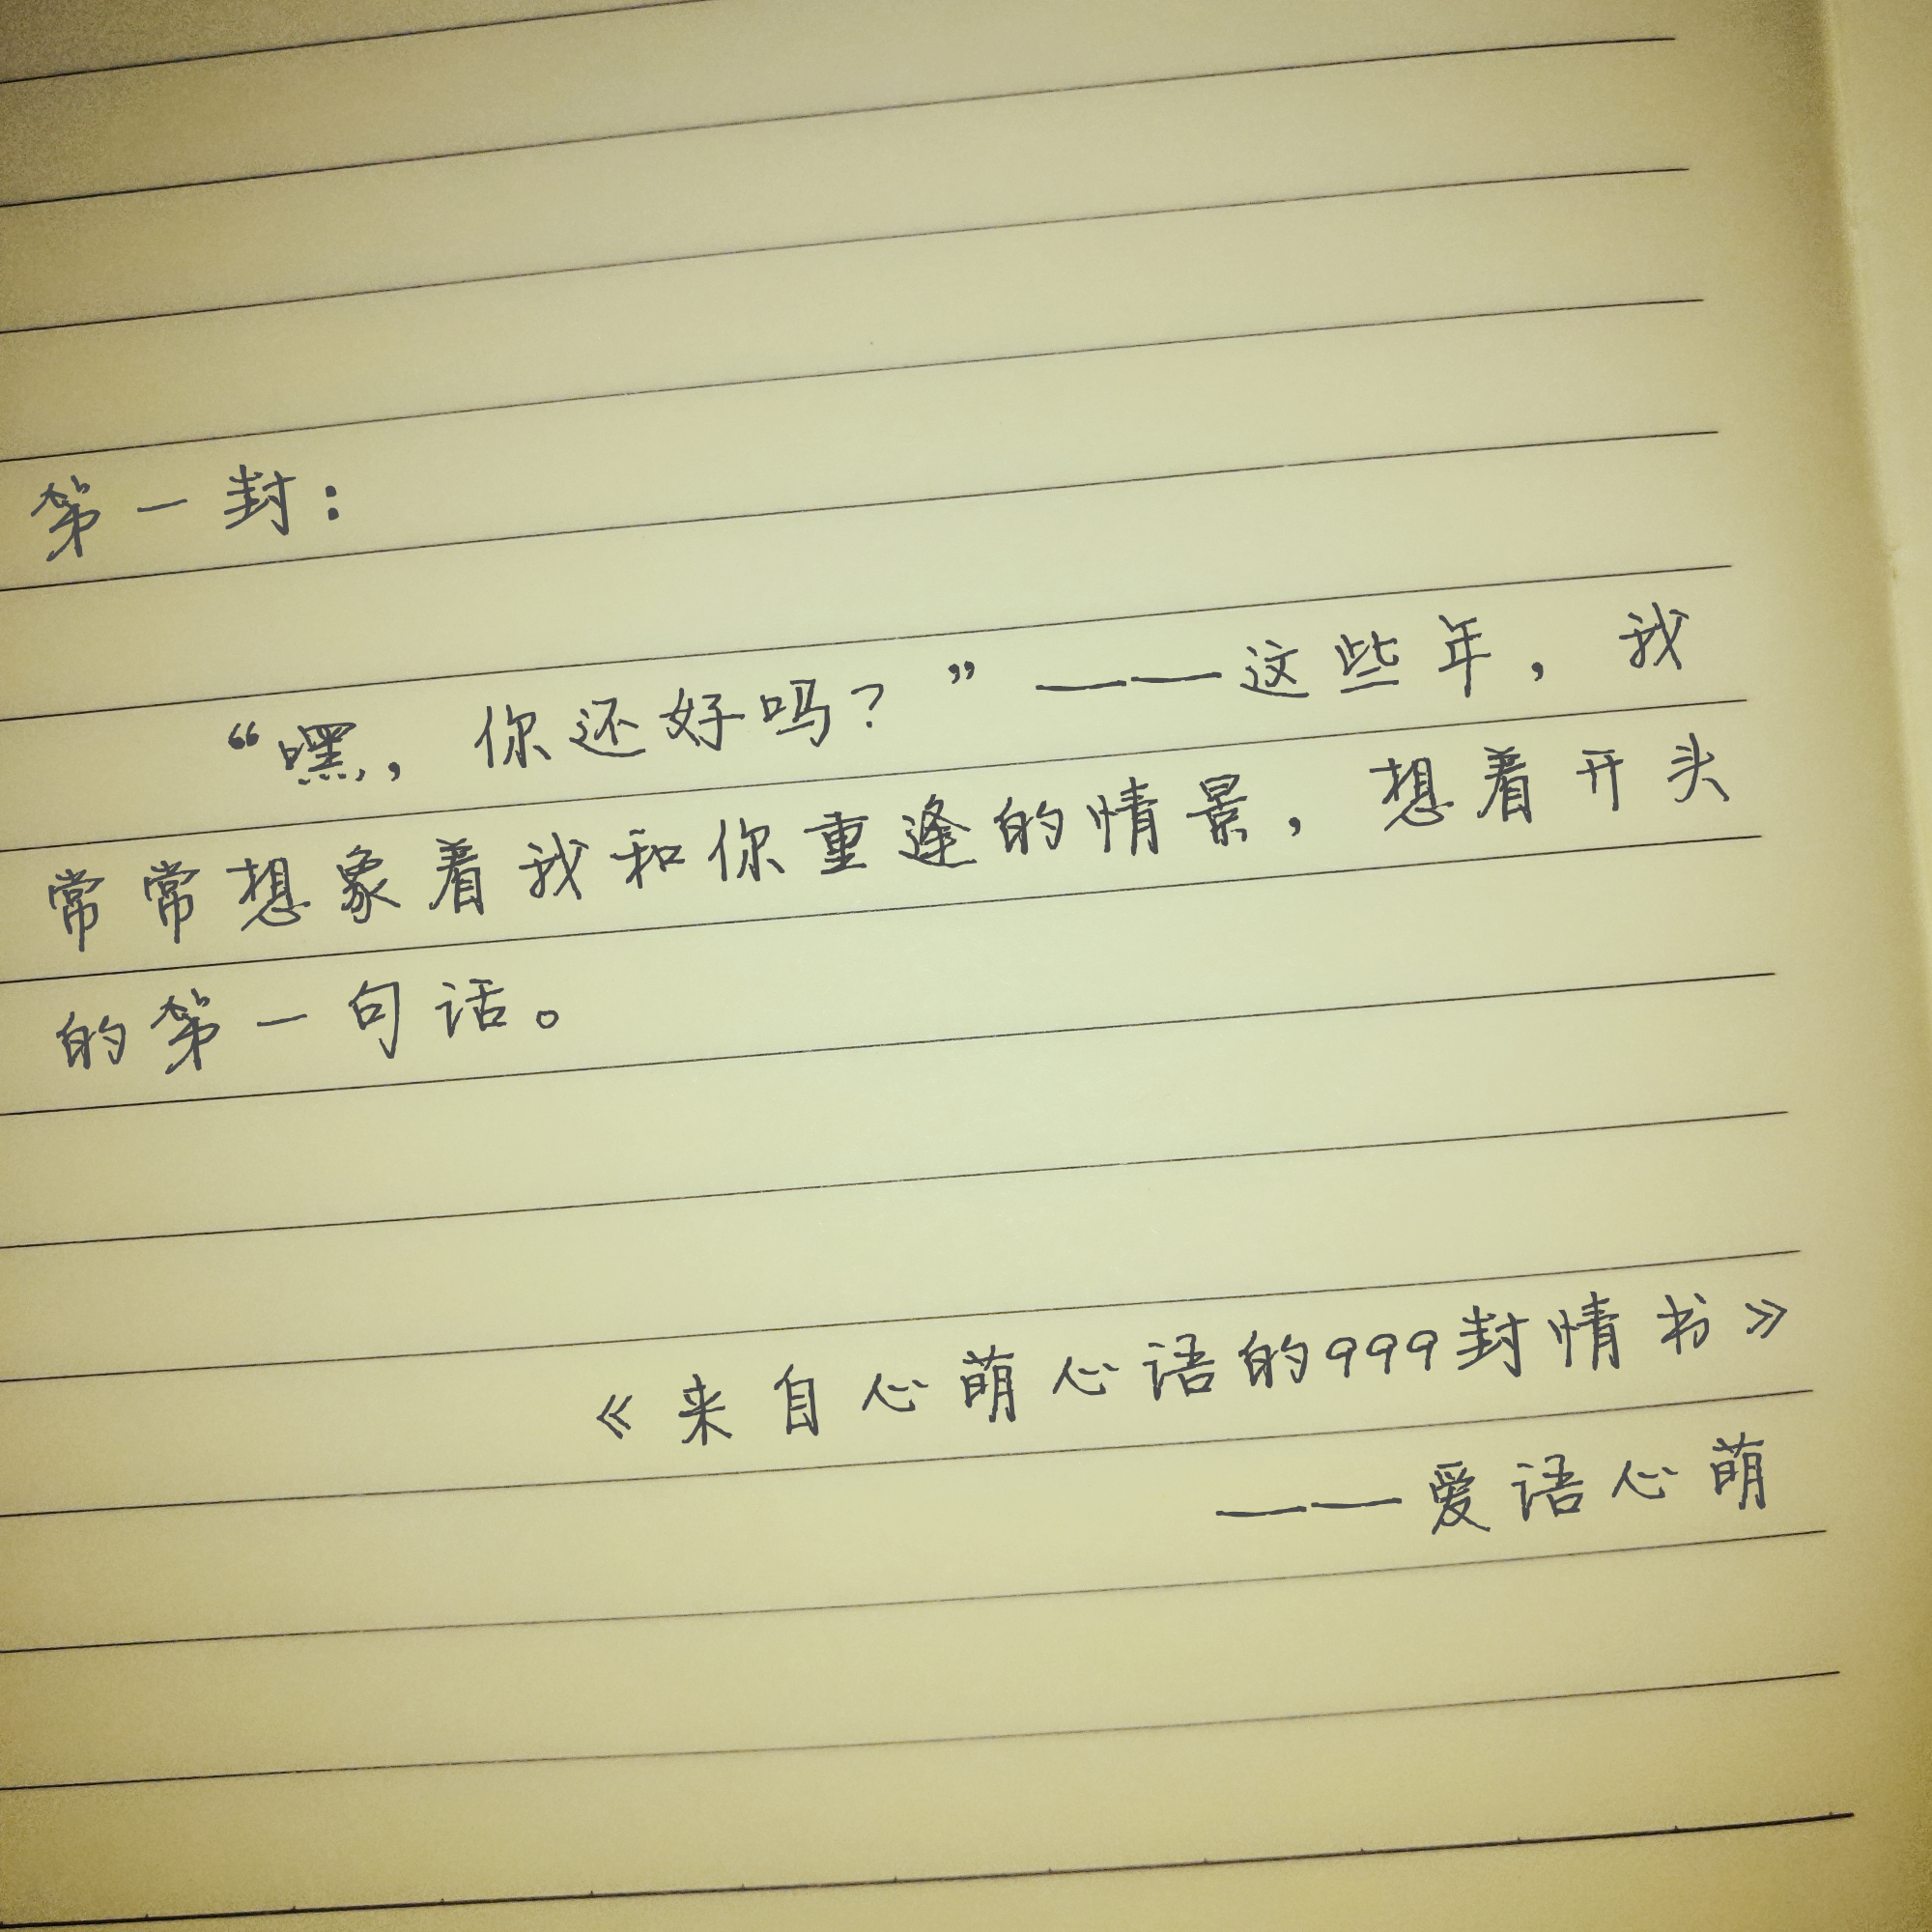 第一封：
“嘿，你还好吗？”——这些年，我
常常想象着我和你重逢的情景，想着开头
的第一句话。
《来自心萌心语的999封情书》
——爱语心萌